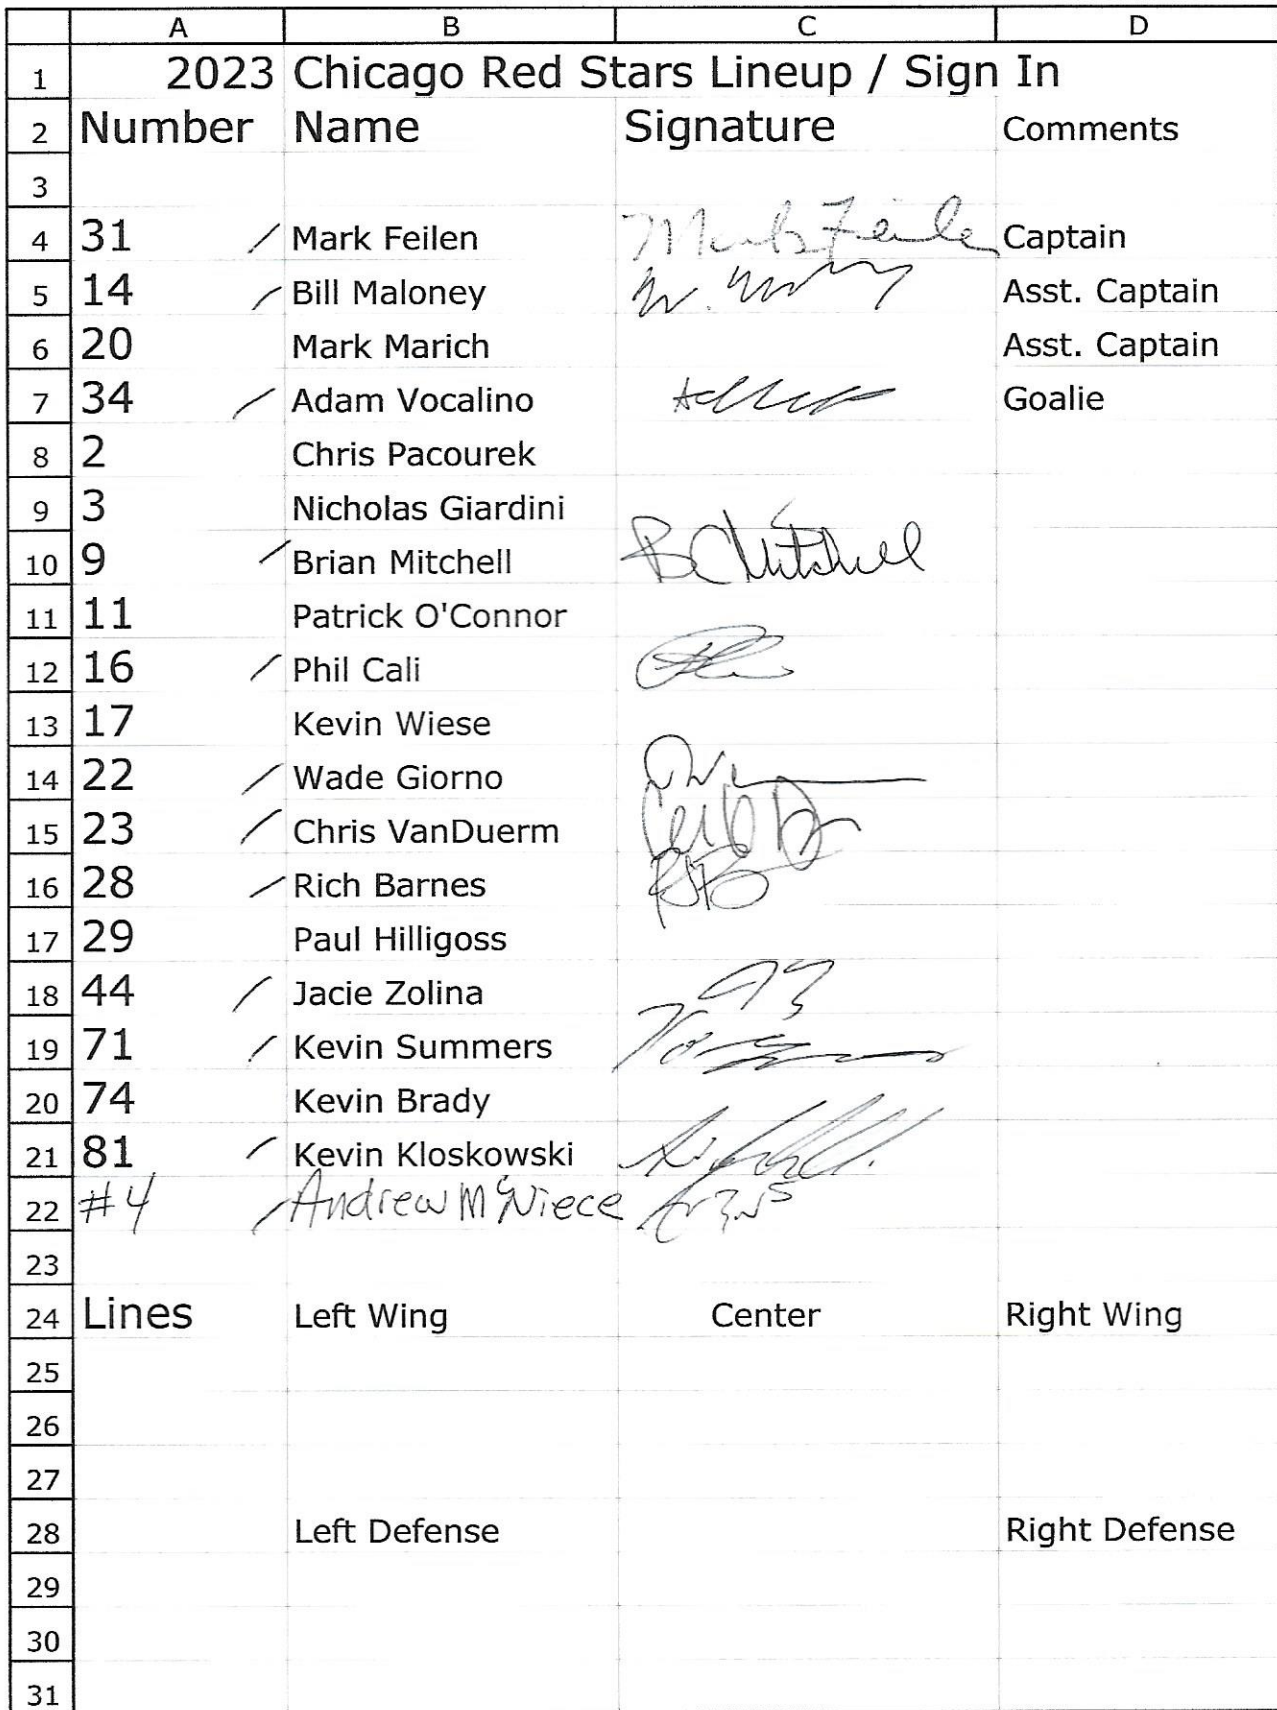 A B C D
1 2023 Chicago Red Stars Lineup / Sign In
2 Number Name Signature Comments
3
4 31 / Mark Feilen Mark Feilen Captain
5 14 / Bill Maloney Asst. Captain
6 20 Mark Marich Asst. Captain
7 34 / Adam Vocalino Goalie
8 2 Chris Pacourek
9 3 Nicholas Giardini
10 9 / Brian Mitchell BC Mitchell
11 11 Patrick O'Connor
12 16 / Phil Cali
13 17 Kevin Wiese
14 22 / Wade Giorno
15 23 / Chris VanDuerm
16 28 / Rich Barnes
17 29 Paul Hilligoss
18 44 / Jacie Zolina
19 71 / Kevin Summers
20 74 Kevin Brady
21 81 / Kevin Kloskowski
22 #4 / Andrew McNiece
23
24 Lines Left Wing Center Right Wing
25
26
27
28 Left Defense Right Defense
29
30
31